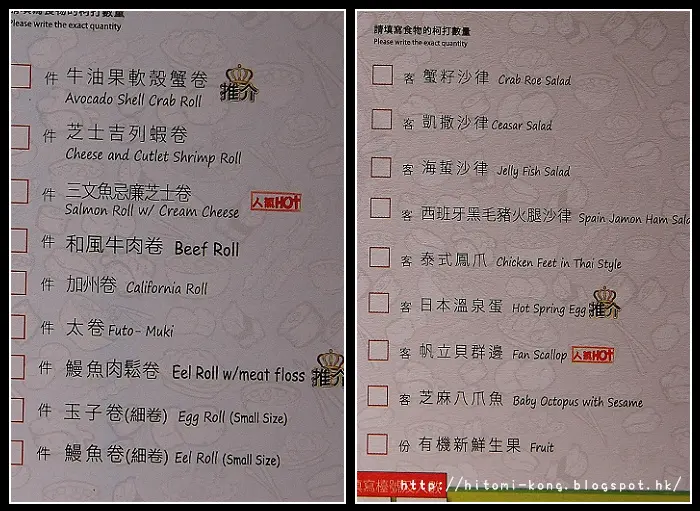 請填寫食物的柯打數量
Please write the exact quantity
件 牛油果軟殼蟹卷 推介
Avocado Shell Crab Roll
件 芝士吉列蝦卷
Cheese and Cutlet Shrimp Roll
件 三文魚忌廉芝士卷
Salmon Roll w/ Cream Cheese 人氣HOT
件 和風牛肉卷 Beef Roll
件 加州卷 California Roll
件 太卷 Futo- Muki
件 鰻魚肉鬆卷 Eel Roll w/meat floss 推介
件 玉子卷(細卷) Egg Roll (Small Size)
件 鰻魚卷(細卷) Eel Roll (Small Size)
請填寫食物的柯打數量
Please write the exact quantity
客 蟹籽沙律 Crab Roe Salad
客 凱撒沙律 Ceasar Salad
客 海蜇沙律 Jelly Fish Salad
客 西班牙黑毛豬火腿沙律 Spain Jamon Ham Salad
客 泰式鳳爪 Chicken Feet in Thai Style
客 日本溫泉蛋 Hot Spring Egg 推介
客 帆立貝群邊 Fan Scallop 人氣HOT
客 芝麻八爪魚 Baby Octopus with Sesame
份 有機新鮮生果 Fruit
填寫檯號及人數
http://hitomi-kong.blogspot.hk/